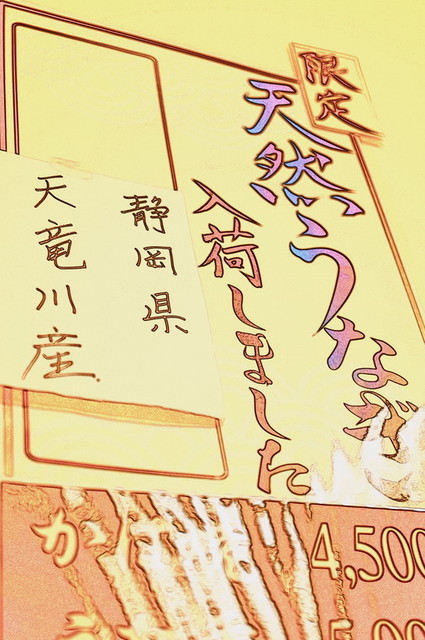 限定
天然うなぎ
入荷しました
静岡県
天竜川産
か
4,500